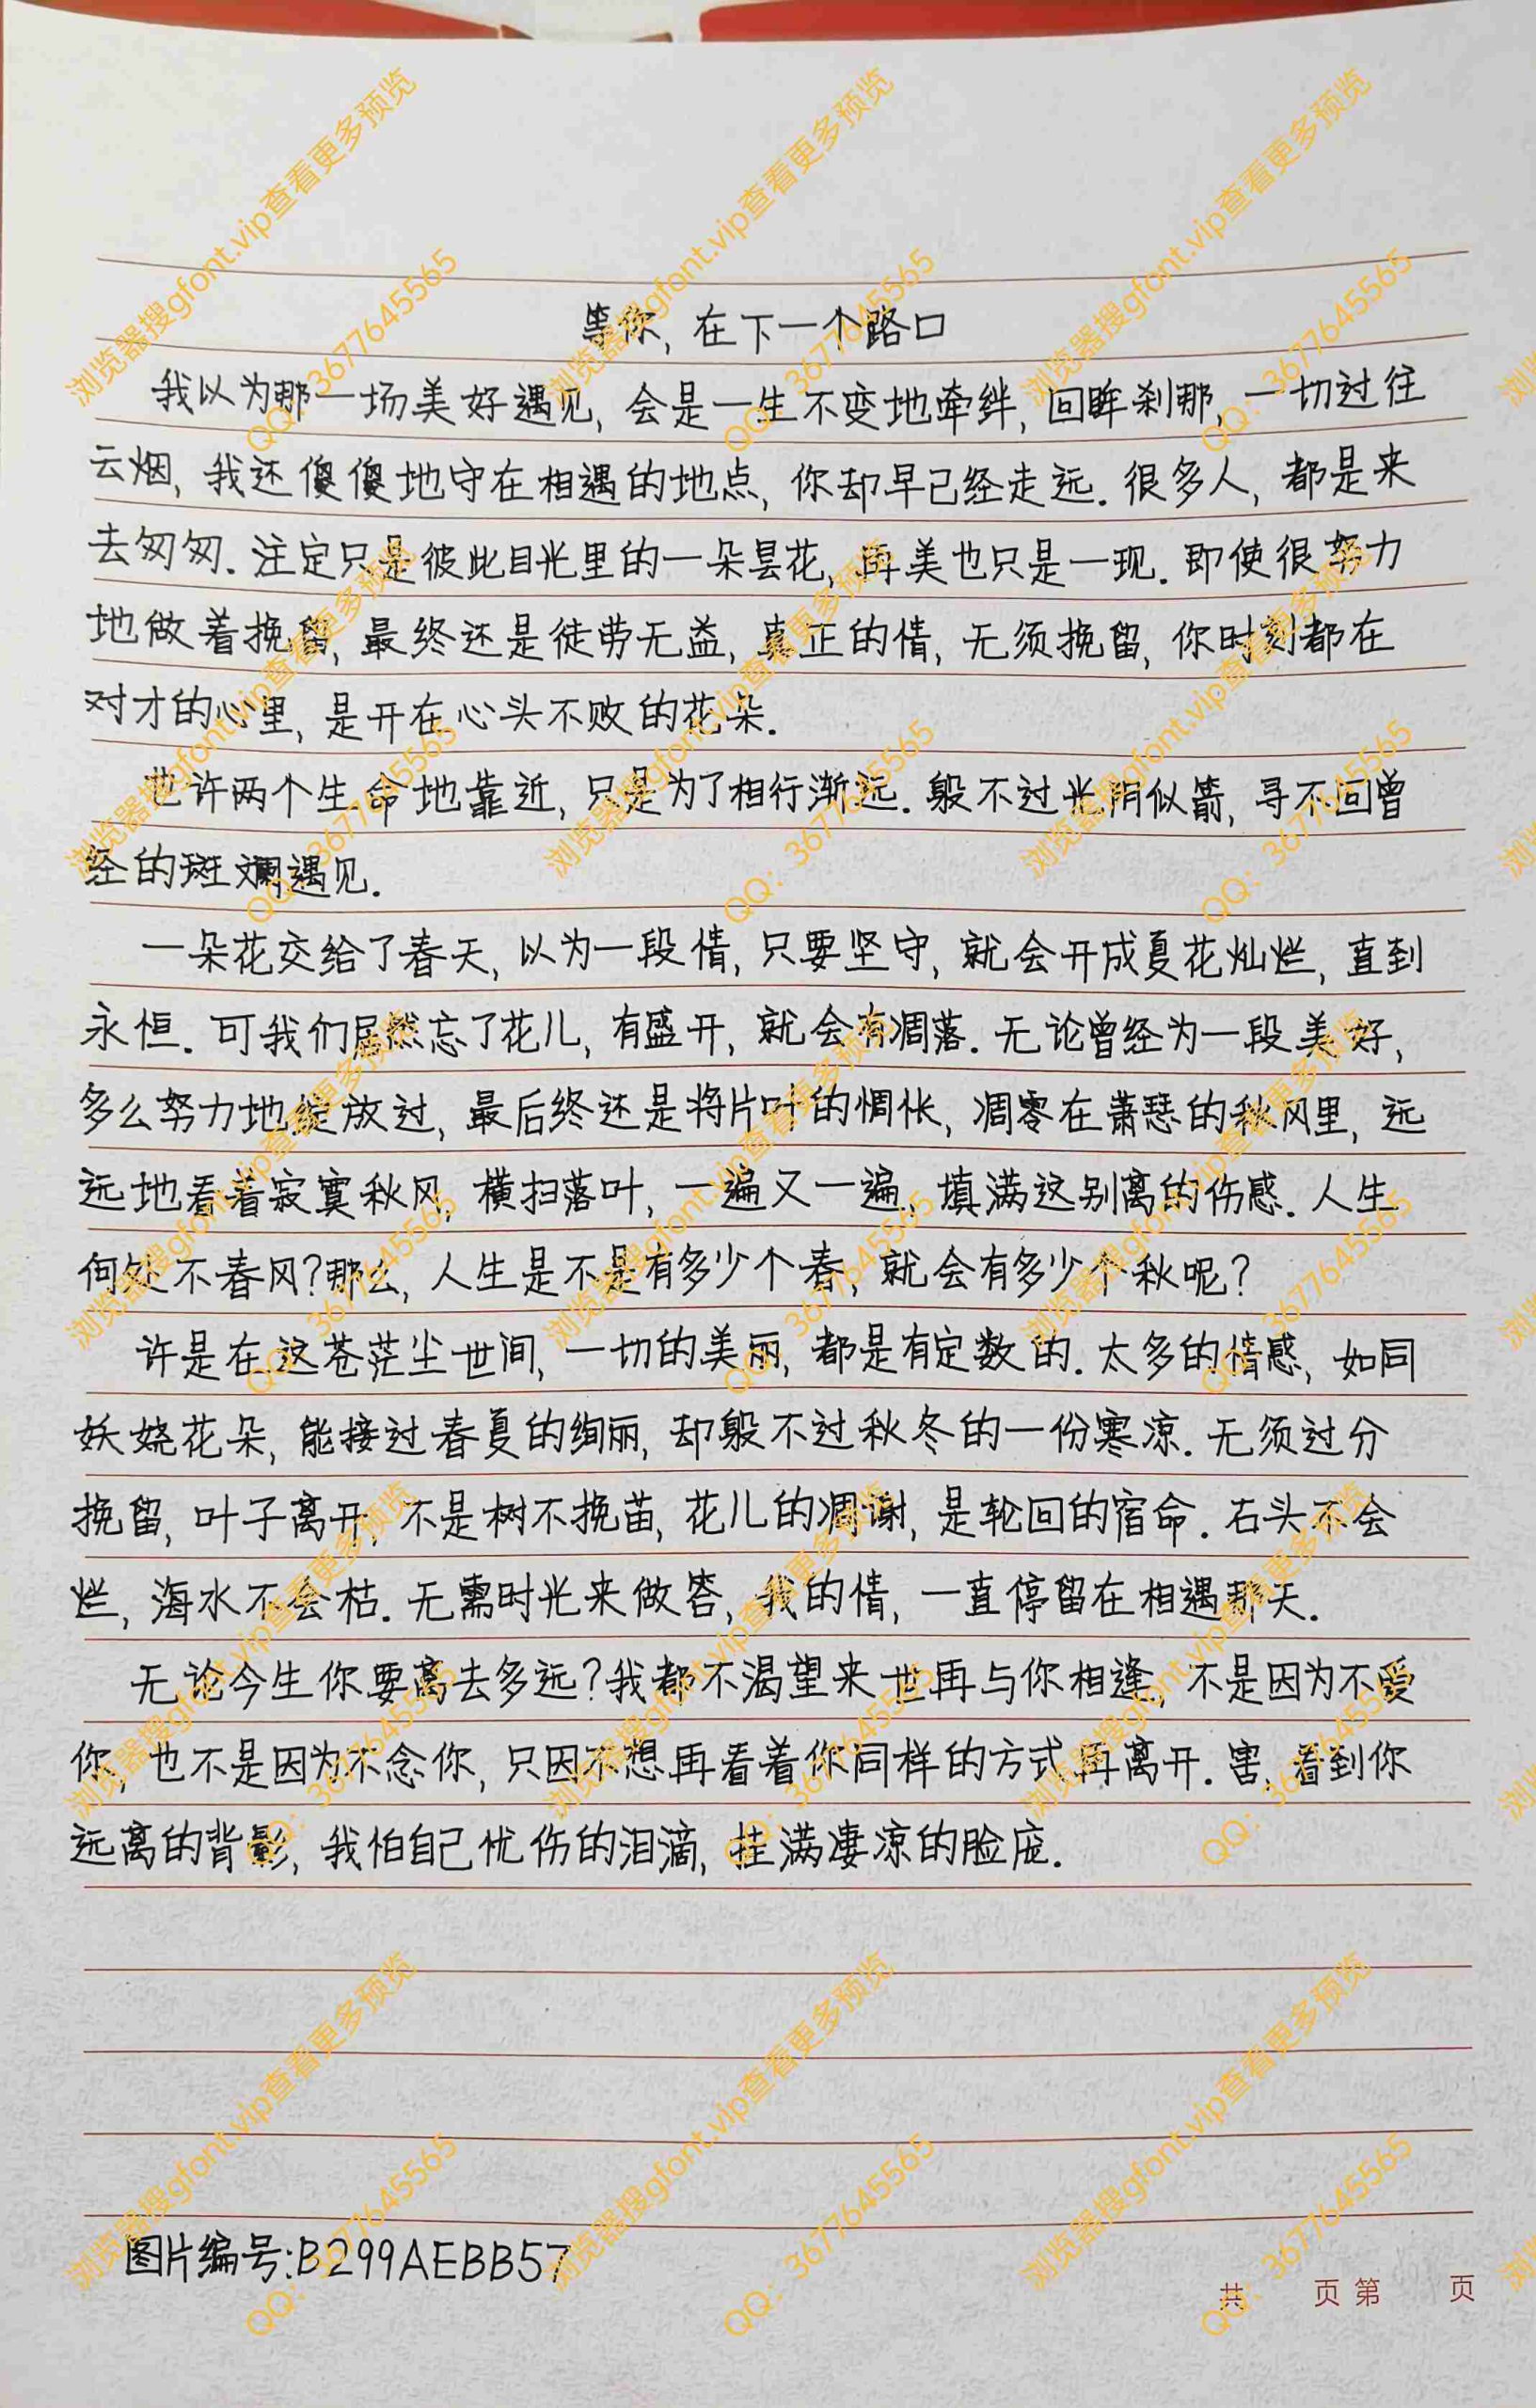 等你, 在下一个路口
我以为那一场美好遇见, 会是一生不变地牵绊, 回眸刹那, 一切过往
云烟, 我还傻傻地守在相遇的地点, 你却早已经走远. 很多人, 都是来
去匆匆. 注定只是彼此目光里的一朵昙花, 再美也只是一现. 即使很努力
地做着挽留, 最终还是徒劳无益, 真正的情, 无须挽留, 你时刻都在
对才的心里, 是开在心头不败的花朵.
也许两个生命地靠近, 只是为了相行渐远. 躲不过光阴似箭, 寻不回曾
经的斑斓遇见.
一朵花交给了春天, 以为一段情, 只要坚守, 就会开成夏花灿烂, 直到
永恒. 可我们居然忘了花儿, 有盛开, 就会有凋落. 无论曾经为一段美好,
多么努力地绽放过, 最后终还是将片叶的惆怅, 凋零在萧瑟的秋风里, 远
远地看着寂寞秋风, 横扫落叶, 一遍又一遍, 填满这别离的伤感. 人生
何处不春风?那么, 人生是不是有多少个春, 就会有多少个秋呢?
许是在这苍茫尘世间, 一切的美丽, 都是有定数的. 太多的情感, 如同
妖娆花朵, 能接过春夏的绚丽, 却躲不过秋冬的一份寒凉. 无须过分
挽留, 叶子离开, 不是树不挽苗, 花儿的凋谢, 是轮回的宿命. 石头不会
烂, 海水不会枯. 无需时光来做答, 我的情, 一直停留在相遇那天.
无论今生你要离去多远?我都不渴望来世再与你相逢, 不是因为不爱
你, 也不是因为不念你, 只因不想再看着你同样的方式再离开. 害, 看到你
远离的背影, 我怕自己忧伤的泪滴, 挂满凄凉的脸庞.
图片编号:B299AEBB57
共 页 第 页
浏览器搜gfont.vip查看更多预览
QQ: 3677645565